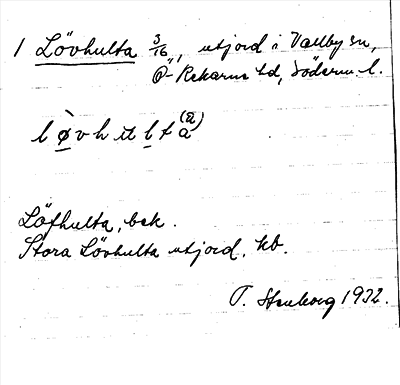 1 Lövhulta 3/16, utjord i Vallby sn,
Ö-Rekarne hd, Söderm. l.
l ø̀ v h u l t a (ɑ)
Löfhulta, bek.
Stora Lövhulta utjord, kb.
T. Stenborg 1932.